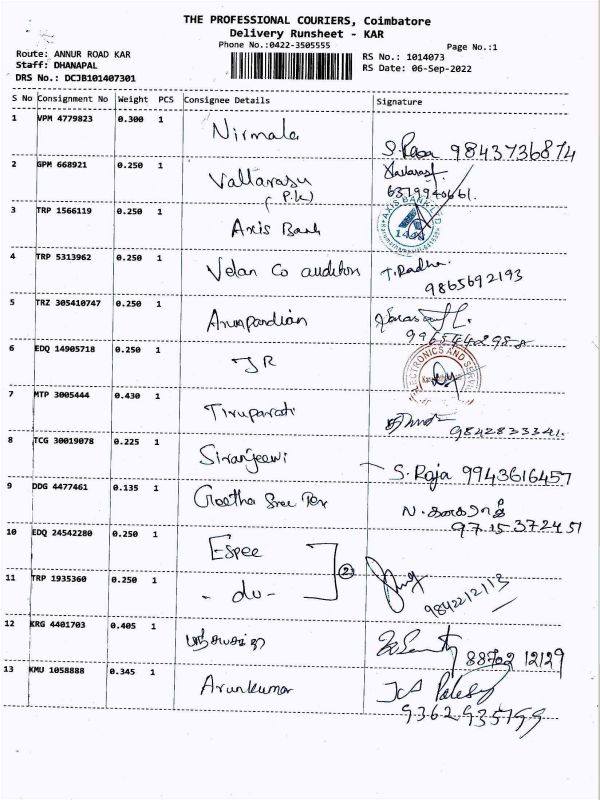 THE PROFESSIONAL COURIERS, Coimbatore
Delivery Runsheet - KAR
Phone No.:0422-3505555
Page No.:1
Route: ANNUR ROAD KAR
Staff: DHANAPAL
DRS No.: DCJB101407301
RS No.: 1014073
RS Date: 06-Sep-2022
S No Consignment No Weight PCS Consignee Details Signature
1 VPM 4779823 0.300 1 Nirmala S. Raja 9843736874
2 GPM 668921 0.250 1 Vallarasu (P.K) 6379940661.
3 TRP 1566119 0.250 1 Axis Bank AXIS BANK LTD
4 TRP 5313962 0.250 1 Velan Co auditon T. Radha. 9865692193
5 TRZ 305410747 0.250 1 Arunpandian
6 EDQ 14905718 0.250 1 JR ELECTRONICS AND SERVI
7 MTP 3005444 0.430 1 Tiruparati 9842833341.
8 TCG 30019078 0.225 1 Siranjeevi S. Raja 9943616457
9 DDG 4477461 0.135 1 Geetha Sree Tex 9715372451
10 EDQ 24542280 0.250 1 Espee
2
11 TRP 1935360 0.250 1 - du - 9842212113
12 KRG 4401703 0.405 1 88702 12129
13 KMU 1058888 0.345 1 Arunkumar 9362935799